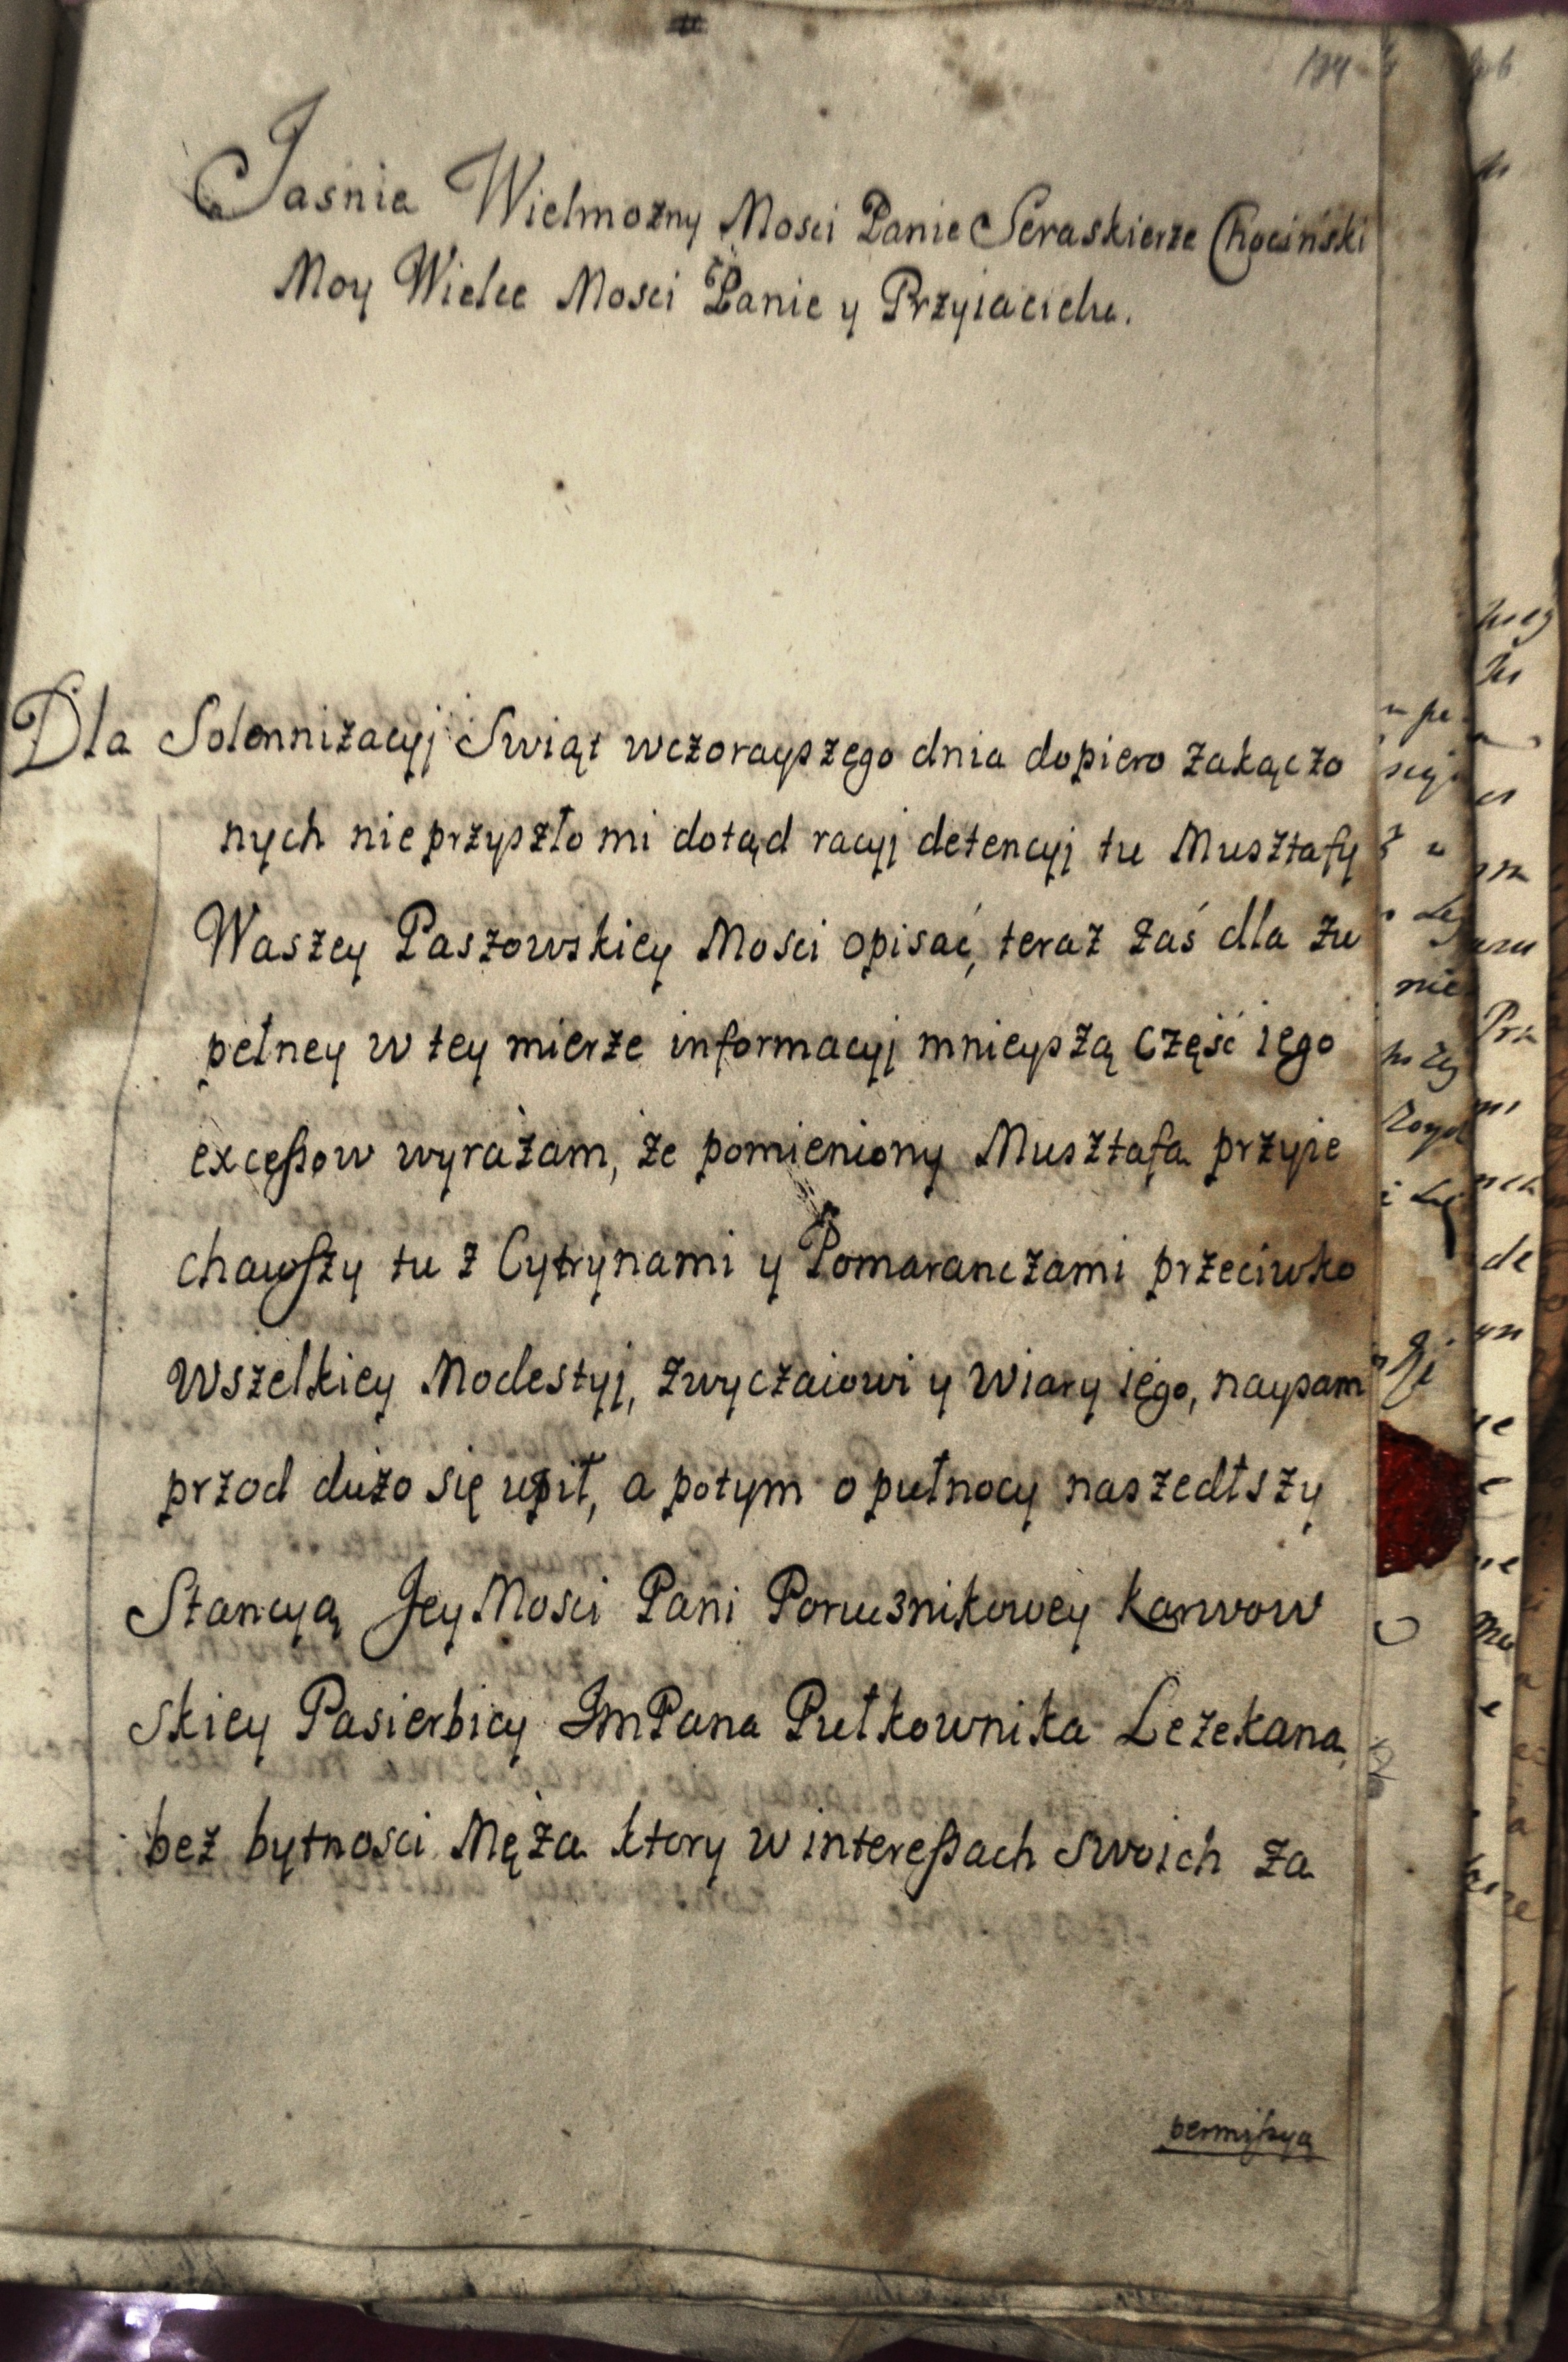 Jasnie Wielmożny Mosci Panie Seraskierze Chociński
Moy Wielce Mosci Panie y Przyiacielu.
Dla Solennizacyj Swiąt wczorayszego dnia dopiero zakączo
nych nie przyszło mi dotąd racyj detencyj tu Musztafy
Waszey Paszowskiey Mosci opisać, teraz zaś dla zu
pełney w tey mierze informacyj mnieyszą część iego
excessow wyrażam, że pomieniony Musztafa przyie
chawszy tu z Cytrynami y Pomaranczami przeciwko
wszelkiey Modestyj, zwyczaiowi y wiary iego, naysam
przod dużo się upił, a potym o pułnocy naszedłszy
Stancyą JeyMosci Pani Porucznikowey Karwow
skiey Pasierbicy JmPana Pułkownika Lezekana,
bez bytnosci Męża ktory w interessach swoich za
permissyą